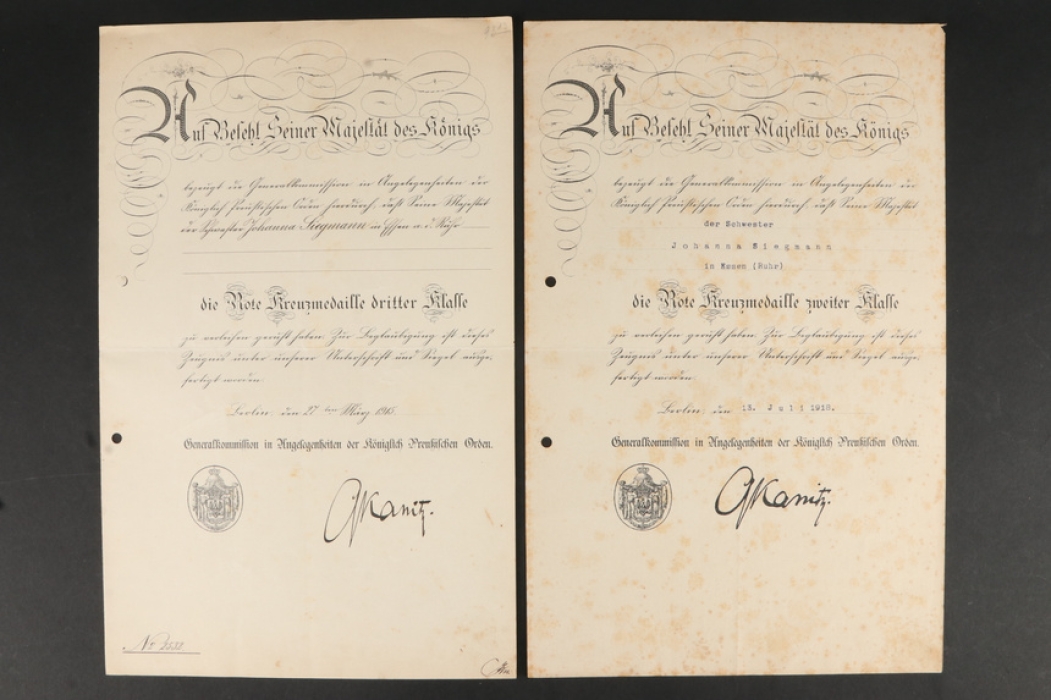 Auf Befehl Seiner Majestät des Königs
bezeugt die Generalkommission in Angelegenheiten der
Königlich Preußischen Orden hierdurch, daß Seine Majestät
der Schwester Johanna Siegmann in Essen a. d. Ruhr
die Rote Kreuzmedaille dritter Klasse
zu verleihen geruht haben. Zur Beglaubigung ist dieses
Zeugnis unter unserer Unterschrift und Siegel ausge-
fertigt worden.
Berlin, den 27 ten März 1915.
Generalkommission in Angelegenheiten der Königlich Preußischen Orden.
GfKanitz.
Nr.
Auf Befehl Seiner Majestät des Königs
bezeugt die Generalkommission in Angelegenheiten der
Königlich Preußischen Orden hierdurch, daß Seine Majestät
der Schwester
Johanna Siegmann
in Essen (Ruhr)
die Rote Kreuzmedaille zweiter Klasse
zu verleihen geruht haben. Zur Beglaubigung ist dieses
Zeugnis unter unserer Unterschrift und Siegel ausge-
fertigt worden.
Berlin, den 13. Juli 1918.
Generalkommission in Angelegenheiten der Königlich Preußischen Orden.
GfKanitz.